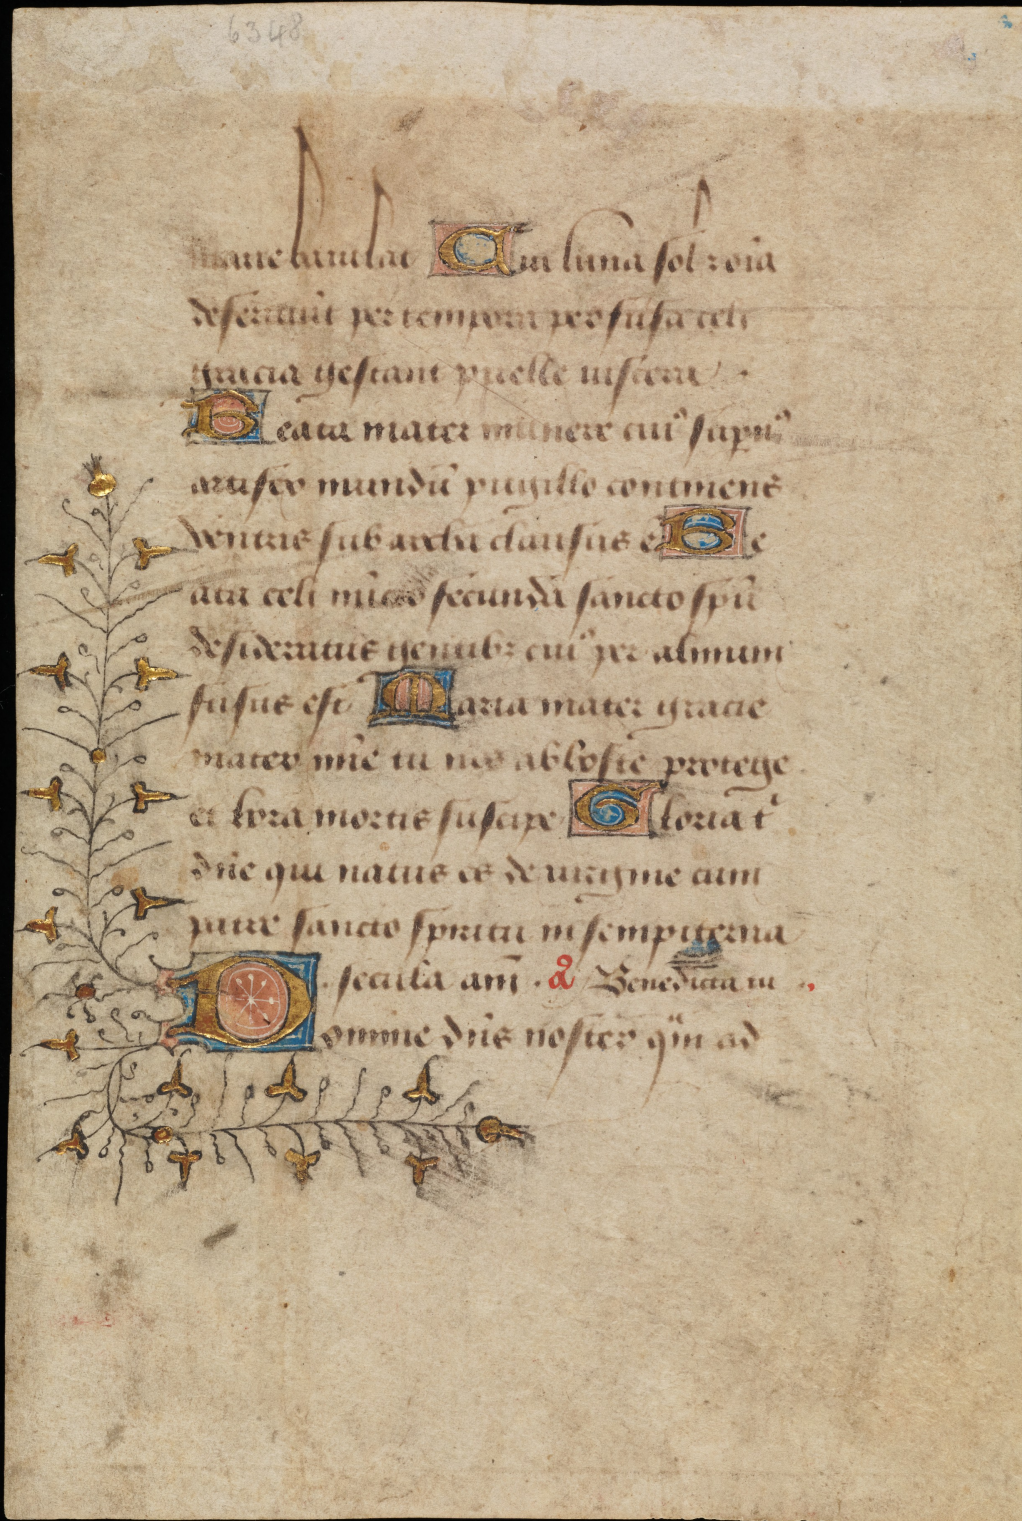 6348
marie baiulat Cui luna sol ⁊ oīa
deseruiūt per tempora perfusa celi
gracia gestant puelle uiscera
Beata mater munere cuiꝰ supnꝰ
artifex mundū pugillo continens
ventris sub archa clausus ē Be
ata celi nūcio fecunda sancto spū
desideratus gentibꝫ cuiꝰ per aluum
fusus est Maria mater gracie
mater mīe tu nos ab hoste protege
et hora mortis suscipe Gloria tⁱ
dn̄e qui natus es de uirgine cum
patre sancto spiritu in sempiterna
secula am̄ . a Benedicta tu
Domine dn̄s noster qm̄ ad